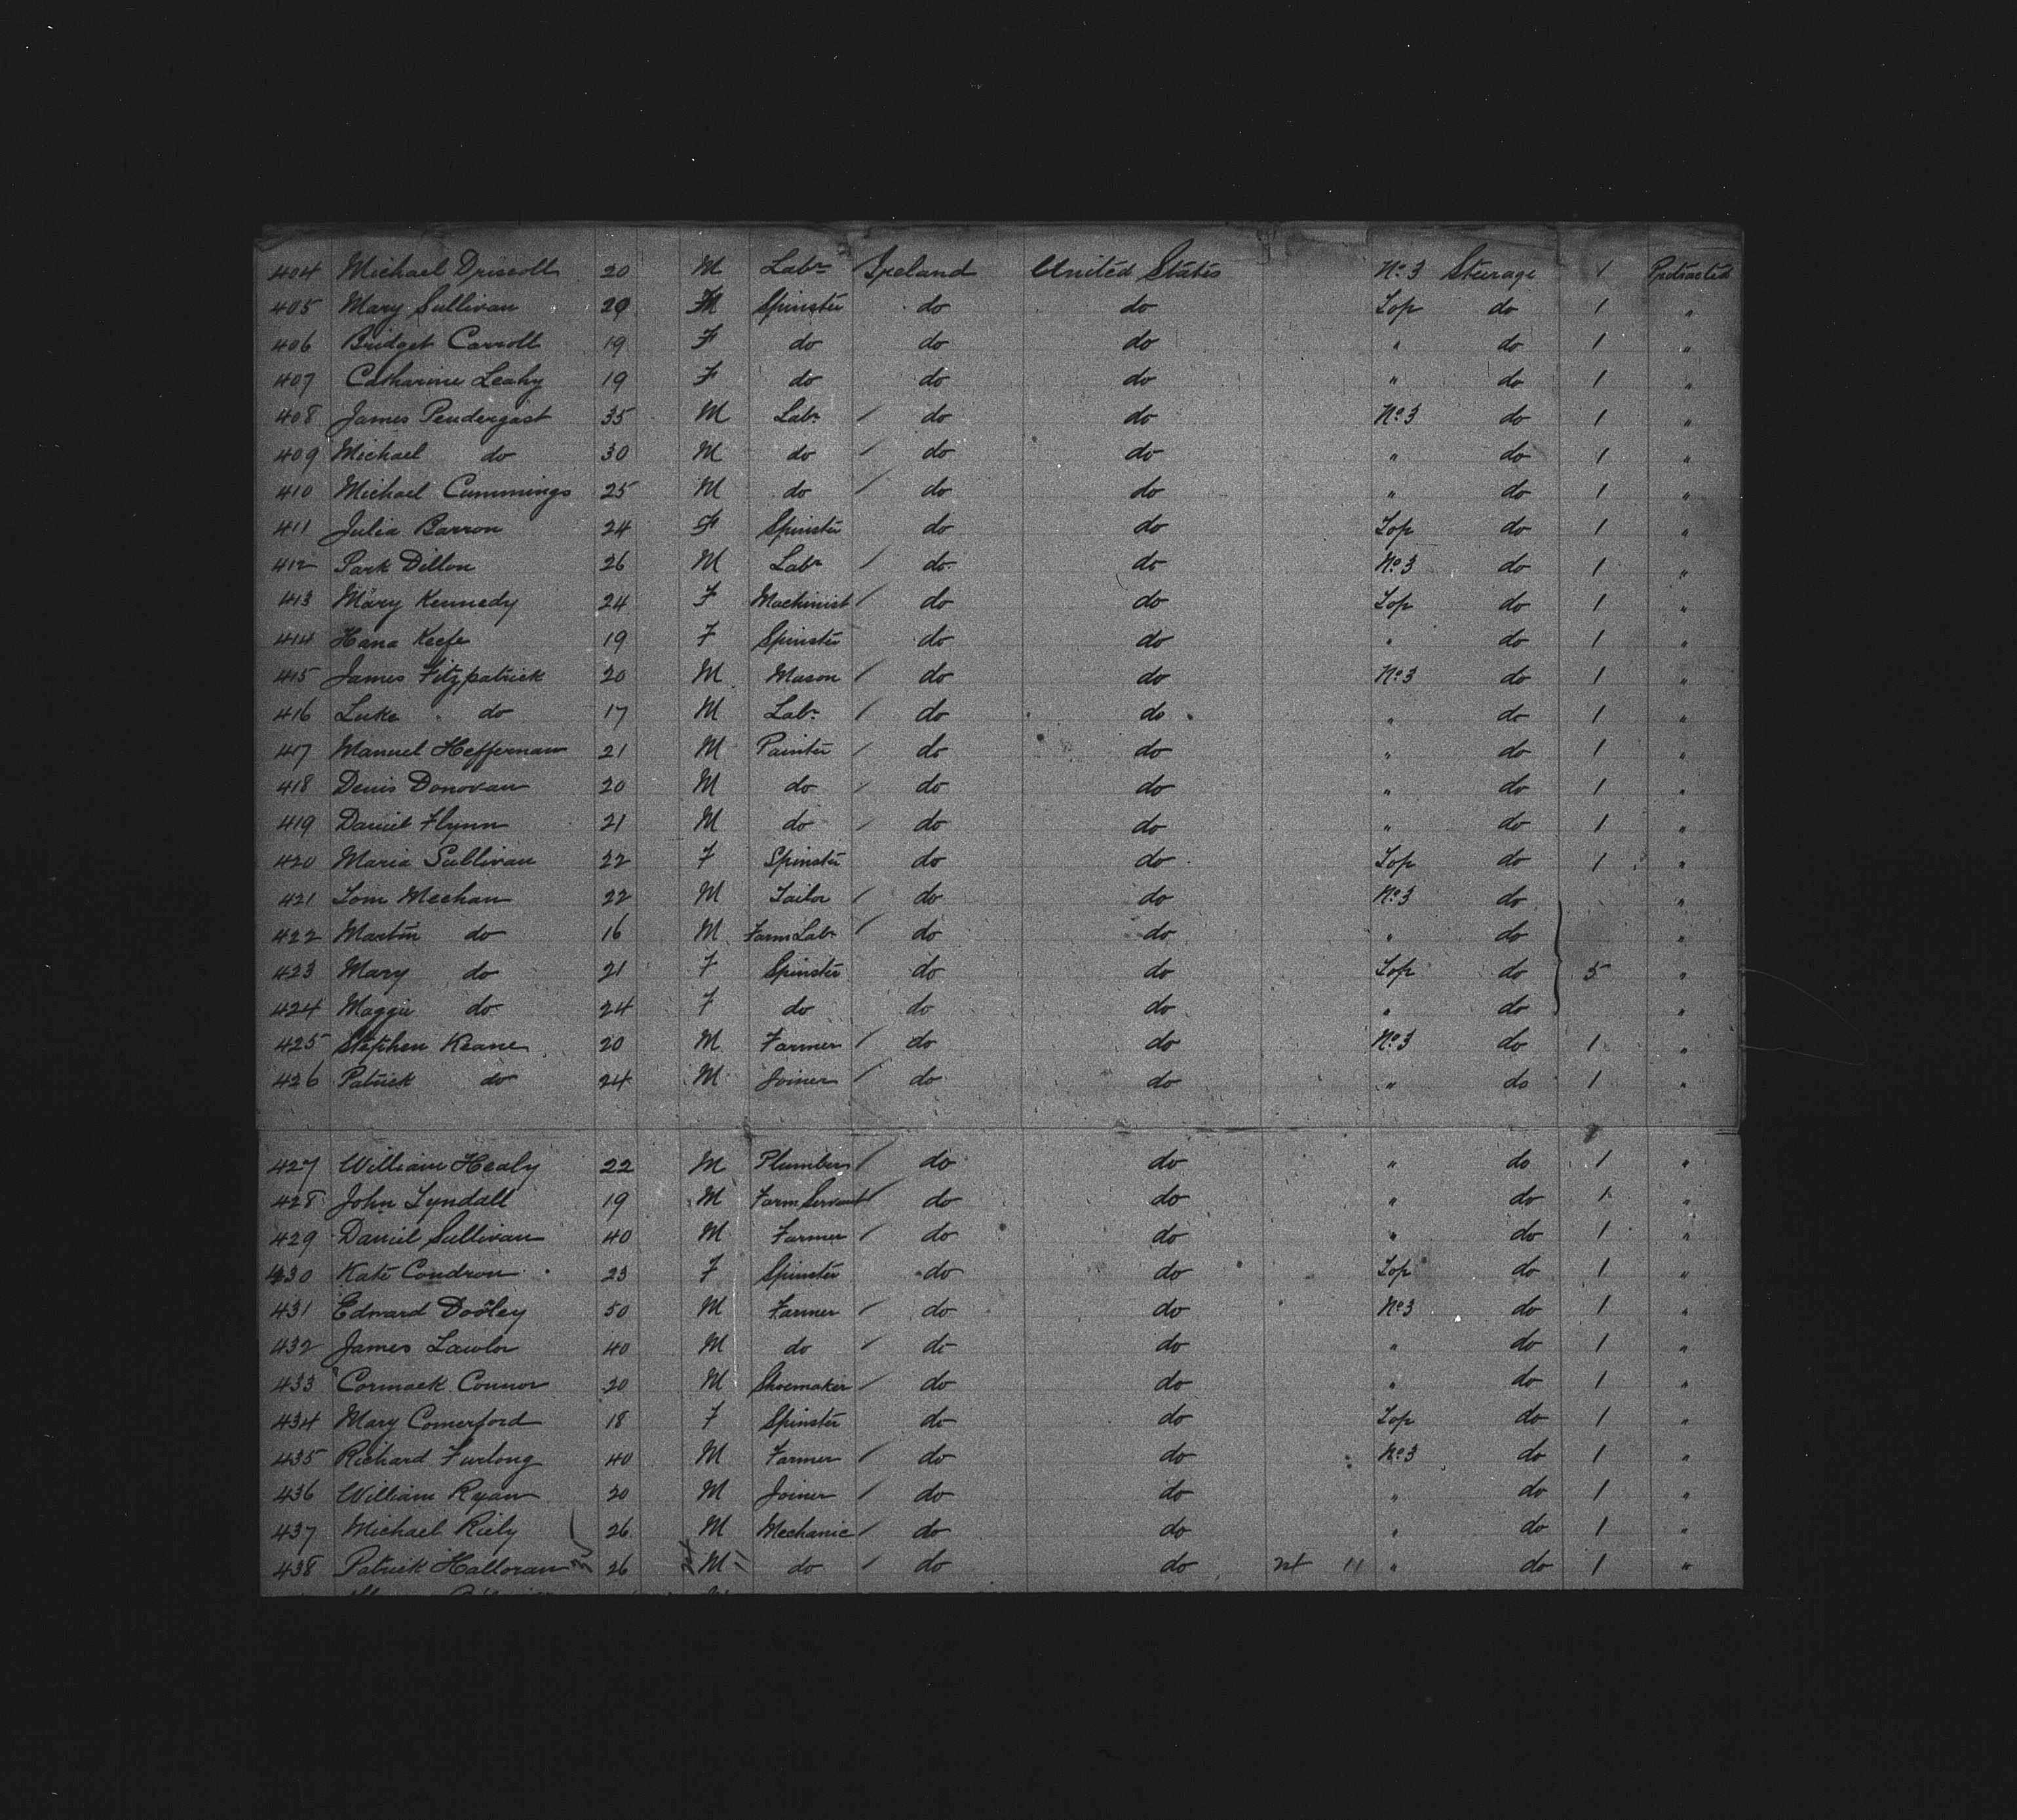 404 Michael Driscoll 20 M Labr Ireland United States No 3 Steerage 1 Protracted
405 Mary Sullivan 29 F Spinster do do Top do 1 "
406 Bridget Carroll 19 F do do do " do 1 "
407 Catharine Leahy 19 F do do do " do 1 "
408 James Pendergast 35 M Labr / do do No 3 do 1 "
409 Michael do 30 M do / do do " do 1 "
410 Michael Cummings 25 M do / do do " do 1 "
411 Julia Barron 24 F Spinster do do Top do 1 "
412 Park Dillon 26 M Labr / do do No 3 do 1 "
413 Mary Kennedy 24 F Machinist / do do Top do 1 "
414 Hana Keefe 19 F Spinster do do " do 1 "
415 James Fitzpatrick 20 M Mason / do do No 3 do 1 "
416 Luke do 17 M Labr / do do " do 1 "
417 Manuel Heffernan 21 M Painter / do do " do 1 "
418 Denis Donovan 20 M do / do do " do 1 "
419 Daniel Flynn 21 M do / do do " do 1 "
420 Maria Sullivan 22 F Spinster do do Top do 1 "
421 Tom Meehan 22 M Tailor / do do No 3 do "
422 Martin do 16 M Farm Labr / do do " do "
423 Mary do 21 F Spinster do do Top do 5 "
424 Maggie do 24 F do do do " do "
425 Stephen Keane 20 M Farmer / do do No 3 do 1 "
426 Patrick do 24 M Joiner / do do " do 1 "
427 William Healy 22 M Plumber / do do " do 1 "
428 John Tyndall 19 M Farm Servant / do do " do 1 "
429 Daniel Sullivan 40 M Farmer / do do " do 1 "
430 Kate Condron 23 F Spinster do do Top do 1 "
431 Edward Dooley 50 M Farmer / do do No 3 do 1 "
432 James Lawlor 40 M do / do do " do 1 "
433 Cormack Connor 20 M Shoemaker / do do " do 1 "
434 Mary Comerford 18 F Spinster do do Top do 1 "
435 Richard Furlong 40 M Farmer / do do No 3 do 1 "
436 William Ryan 20 M Joiner / do do " do 1 "
437 Michael Riely 26 M Mechanic / do do " do 1 "
438 Patrick Halloran 26 M do / do do 11 " do 1 "